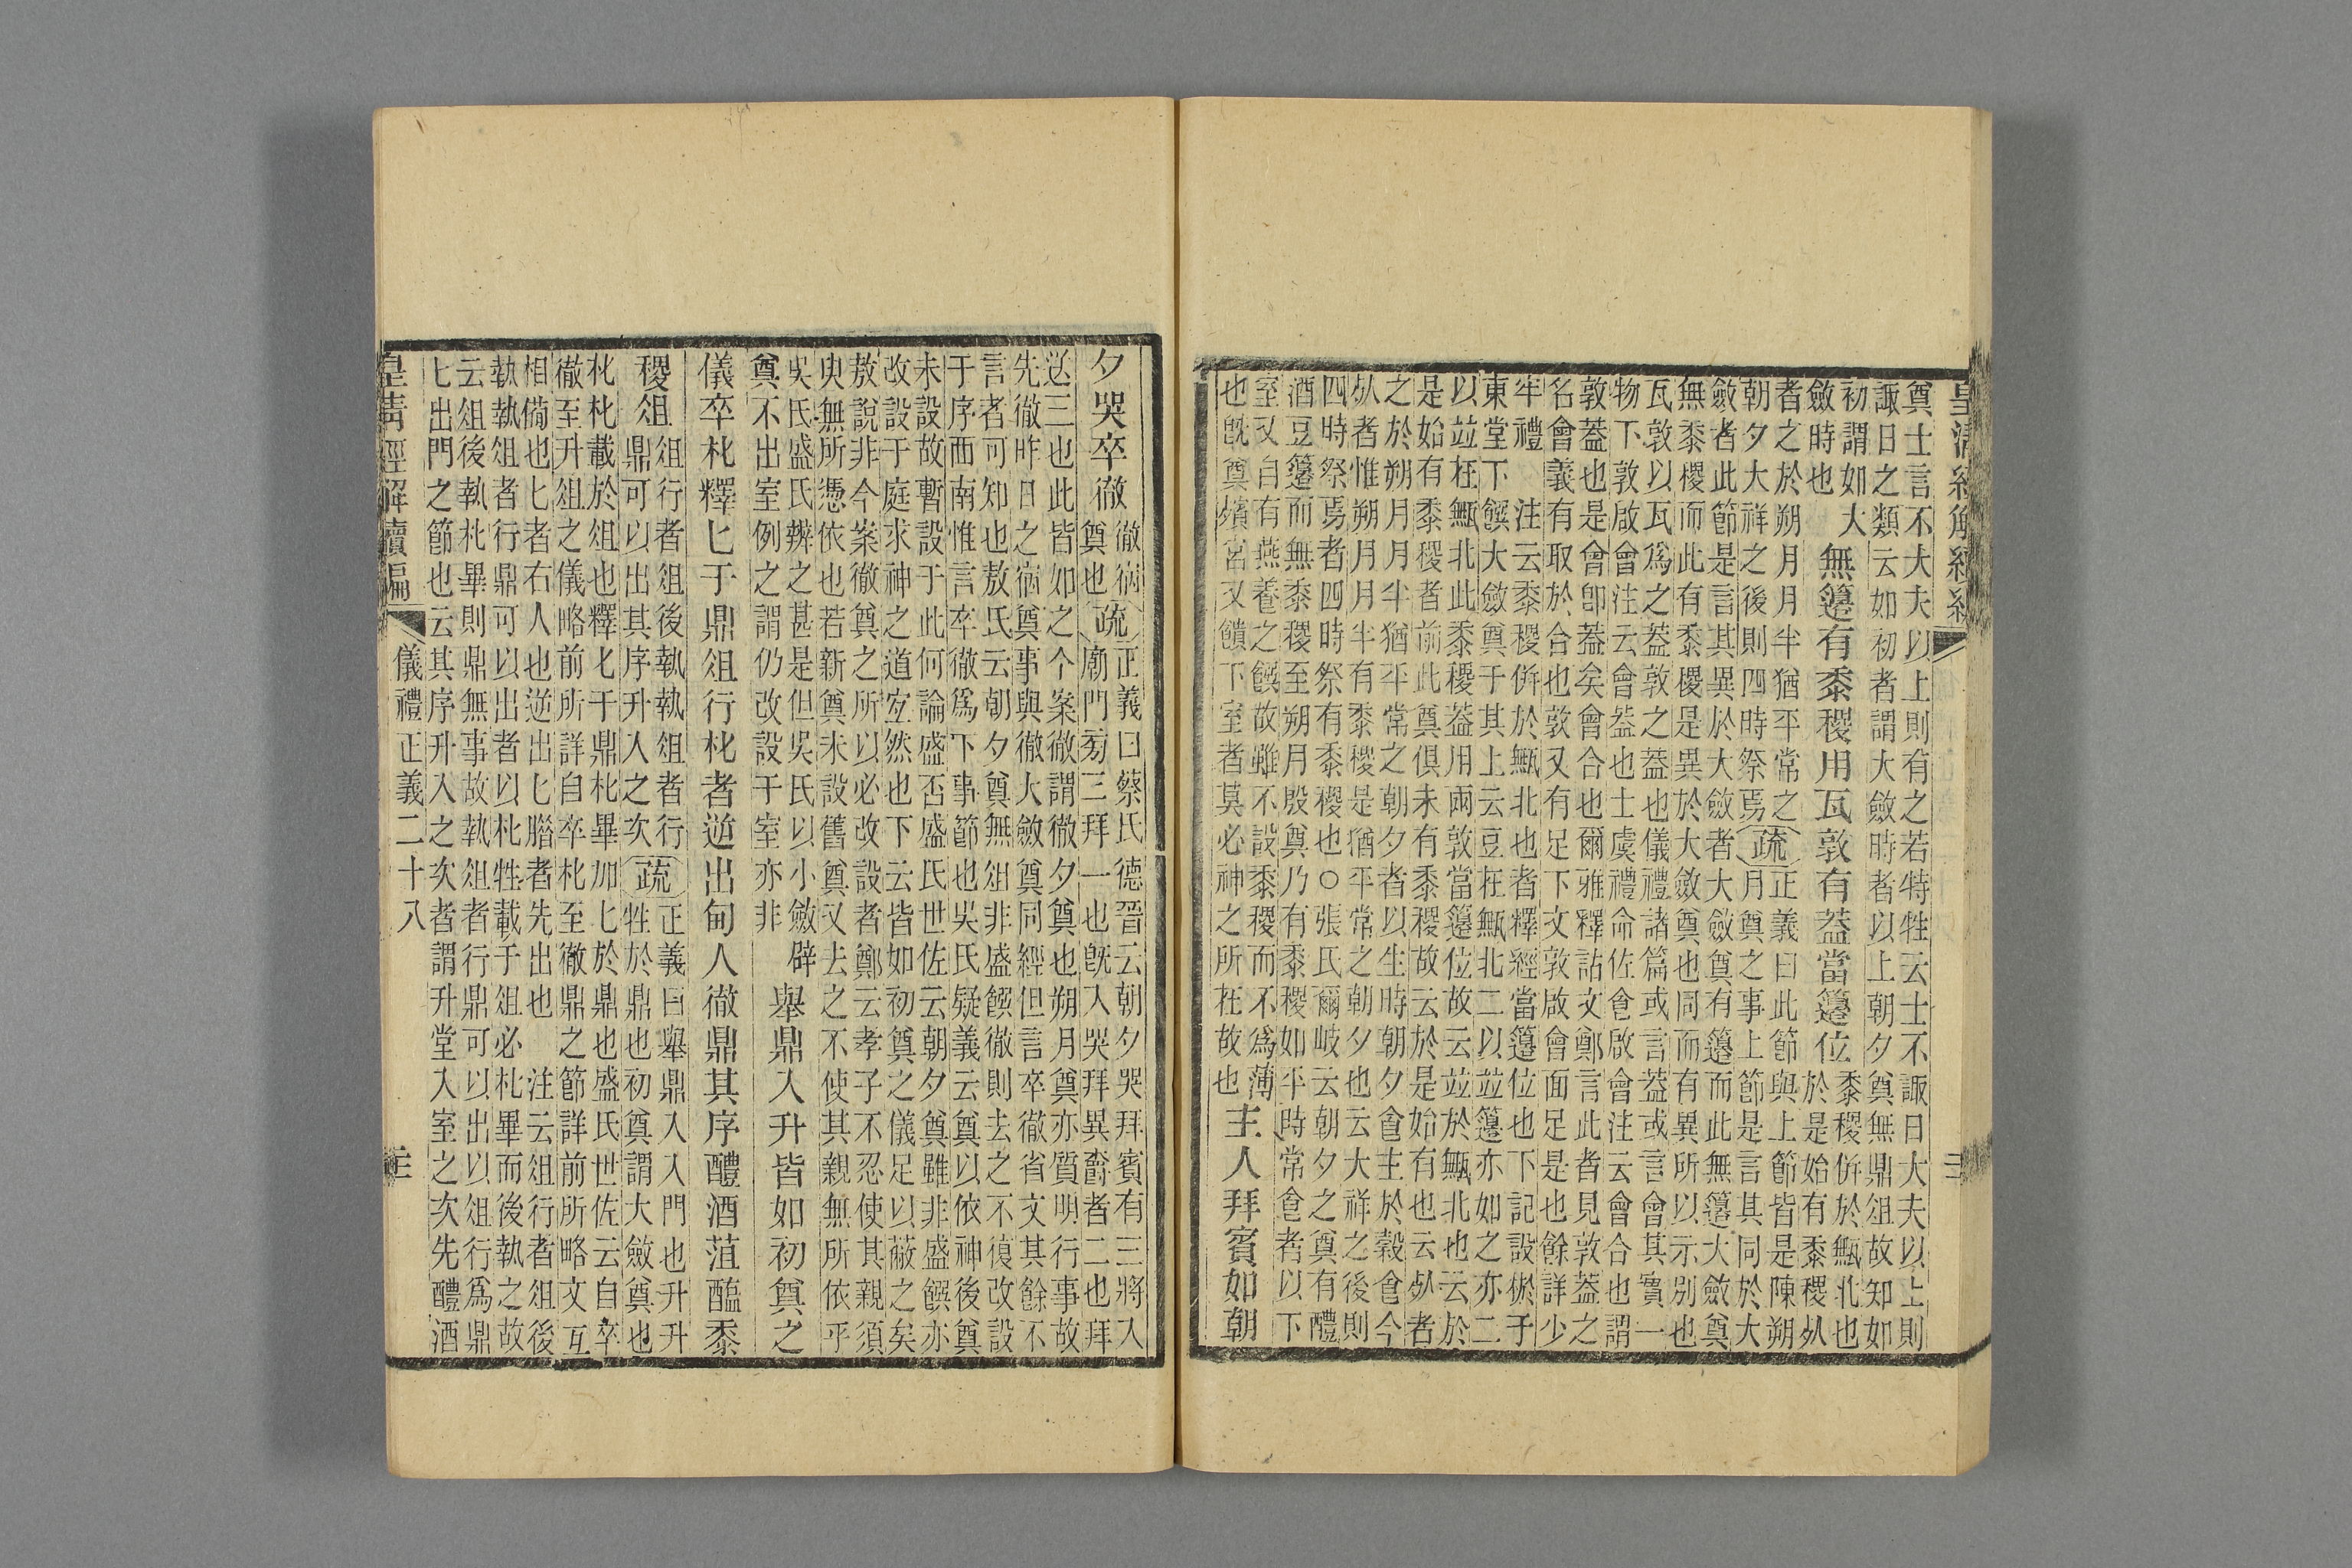 皇清經解續編
奠士言不大夫以上則有之若特牲云士不諏日大夫以上則
諏日之類云如初者謂大斂時者以上朝夕奠無鼎俎故知如
初謂如大
斂時也
無籩有黍稷用瓦敦有蓋當籩位
黍稷併於甒北也
於是始有黍稷死
者之於朔月月半猶平常之
朝夕大祥之後則四時祭焉
疏
正義曰此節與上節皆是陳朔
月奠之事上節是言其同於大
斂者此節是言其異於大斂者大斂奠有籩而此無籩大斂奠
無黍稷而此有黍稷是異於大斂奠也同而有異所以示別也
瓦敦以瓦爲之蓋敦之蓋也儀禮諸篇或言蓋或言會其實一
物下敦啟會注云會蓋也士虞禮命佐食啟會注云會合也謂
敦蓋也是會卽蓋矣會合也爾雅釋詁文鄭言此者見敦蓋之
名會義有取於合也敦又有足下文敦啟會面足是也餘詳少
牢禮　注云黍稷併於甒北也者釋經當籩位也下記設棜于
東堂下饌大斂奠于其上云豆在甒北二以並籩亦如之亦二
以並在甒北此黍稷蓋用兩敦當籩位故云並於甒北也云於
是始有黍稷者前此奠俱未有黍稷故云於是始有也云死者
之於朔月月半猶平常之朝夕者以生時朝夕食主於穀食今
死者惟朔月月半有黍稷是猶平常之朝夕也云大祥之後則
四時祭焉者四時祭有黍稷也○張氏爾岐云朝夕之奠有醴
酒豆籩而無黍稷至朔月殷奠乃有黍稷如平時常食者以下
室又自有燕養之饌故雖不設黍稷而不爲薄
也旣奠殯宮又饋下室者莫必神之所在故也
主人拜賓如朝
夕哭卒徹
徹宿
奠也
疏
正義曰蔡氏德晉云朝夕哭拜賓有三將入
廟門旁三拜一也旣入哭拜異爵者二也拜
送三也此皆如之个案徹謂徹夕奠也朔月奠亦質明行事故
先徹昨日之宿奠事與徹大斂奠同經但言卒徹省文其餘不
言者可知也敖氏云朝夕奠無俎非盛饌徹則去之不復改設
于序西南惟言卒徹爲下事節也吳氏疑義云奠以依神後奠
未設故暫設于此何論盛否盛氏世佐云朝夕奠雖非盛饌亦
改設于庭求神之道宜然也下云皆如初奠之儀足以蔽之矣
敖說非今案徹奠之所以必改設者鄭云孝子不忍使其親須
臾無所憑依也若新奠未設舊奠又去之不使其親無所依乎
吳氏盛氏辨之甚是但吳氏以小斂辟
奠不出室例之謂仍改設于室亦非
舉鼎入升皆如初奠之
儀卒朼釋匕于鼎俎行朼者逆出甸人徹鼎其序醴酒菹醢黍
稷俎
俎行者俎後執執俎者行
鼎可以出其序升入之次
疏
正義曰舉鼎入入門也升升
牲於鼎也初奠謂大斂奠也
朼朼載於俎也釋匕于鼎朼畢加匕於鼎也盛氏世佐云自卒
徹至升俎之儀略前所詳自卒朼至徹鼎之節詳前所略文互
相備也匕者右人也逆出匕腊者先出也　注云俎行者俎後
執執俎者行鼎可以出者以朼牲載于俎必朼畢而後執之故
云俎後執朼畢則鼎無事故執俎者行鼎可以出以俎行爲鼎
匕出門之節也云其序升入之次者謂升堂入室之次先醴酒
皇清經解續編　儀禮正義二十八